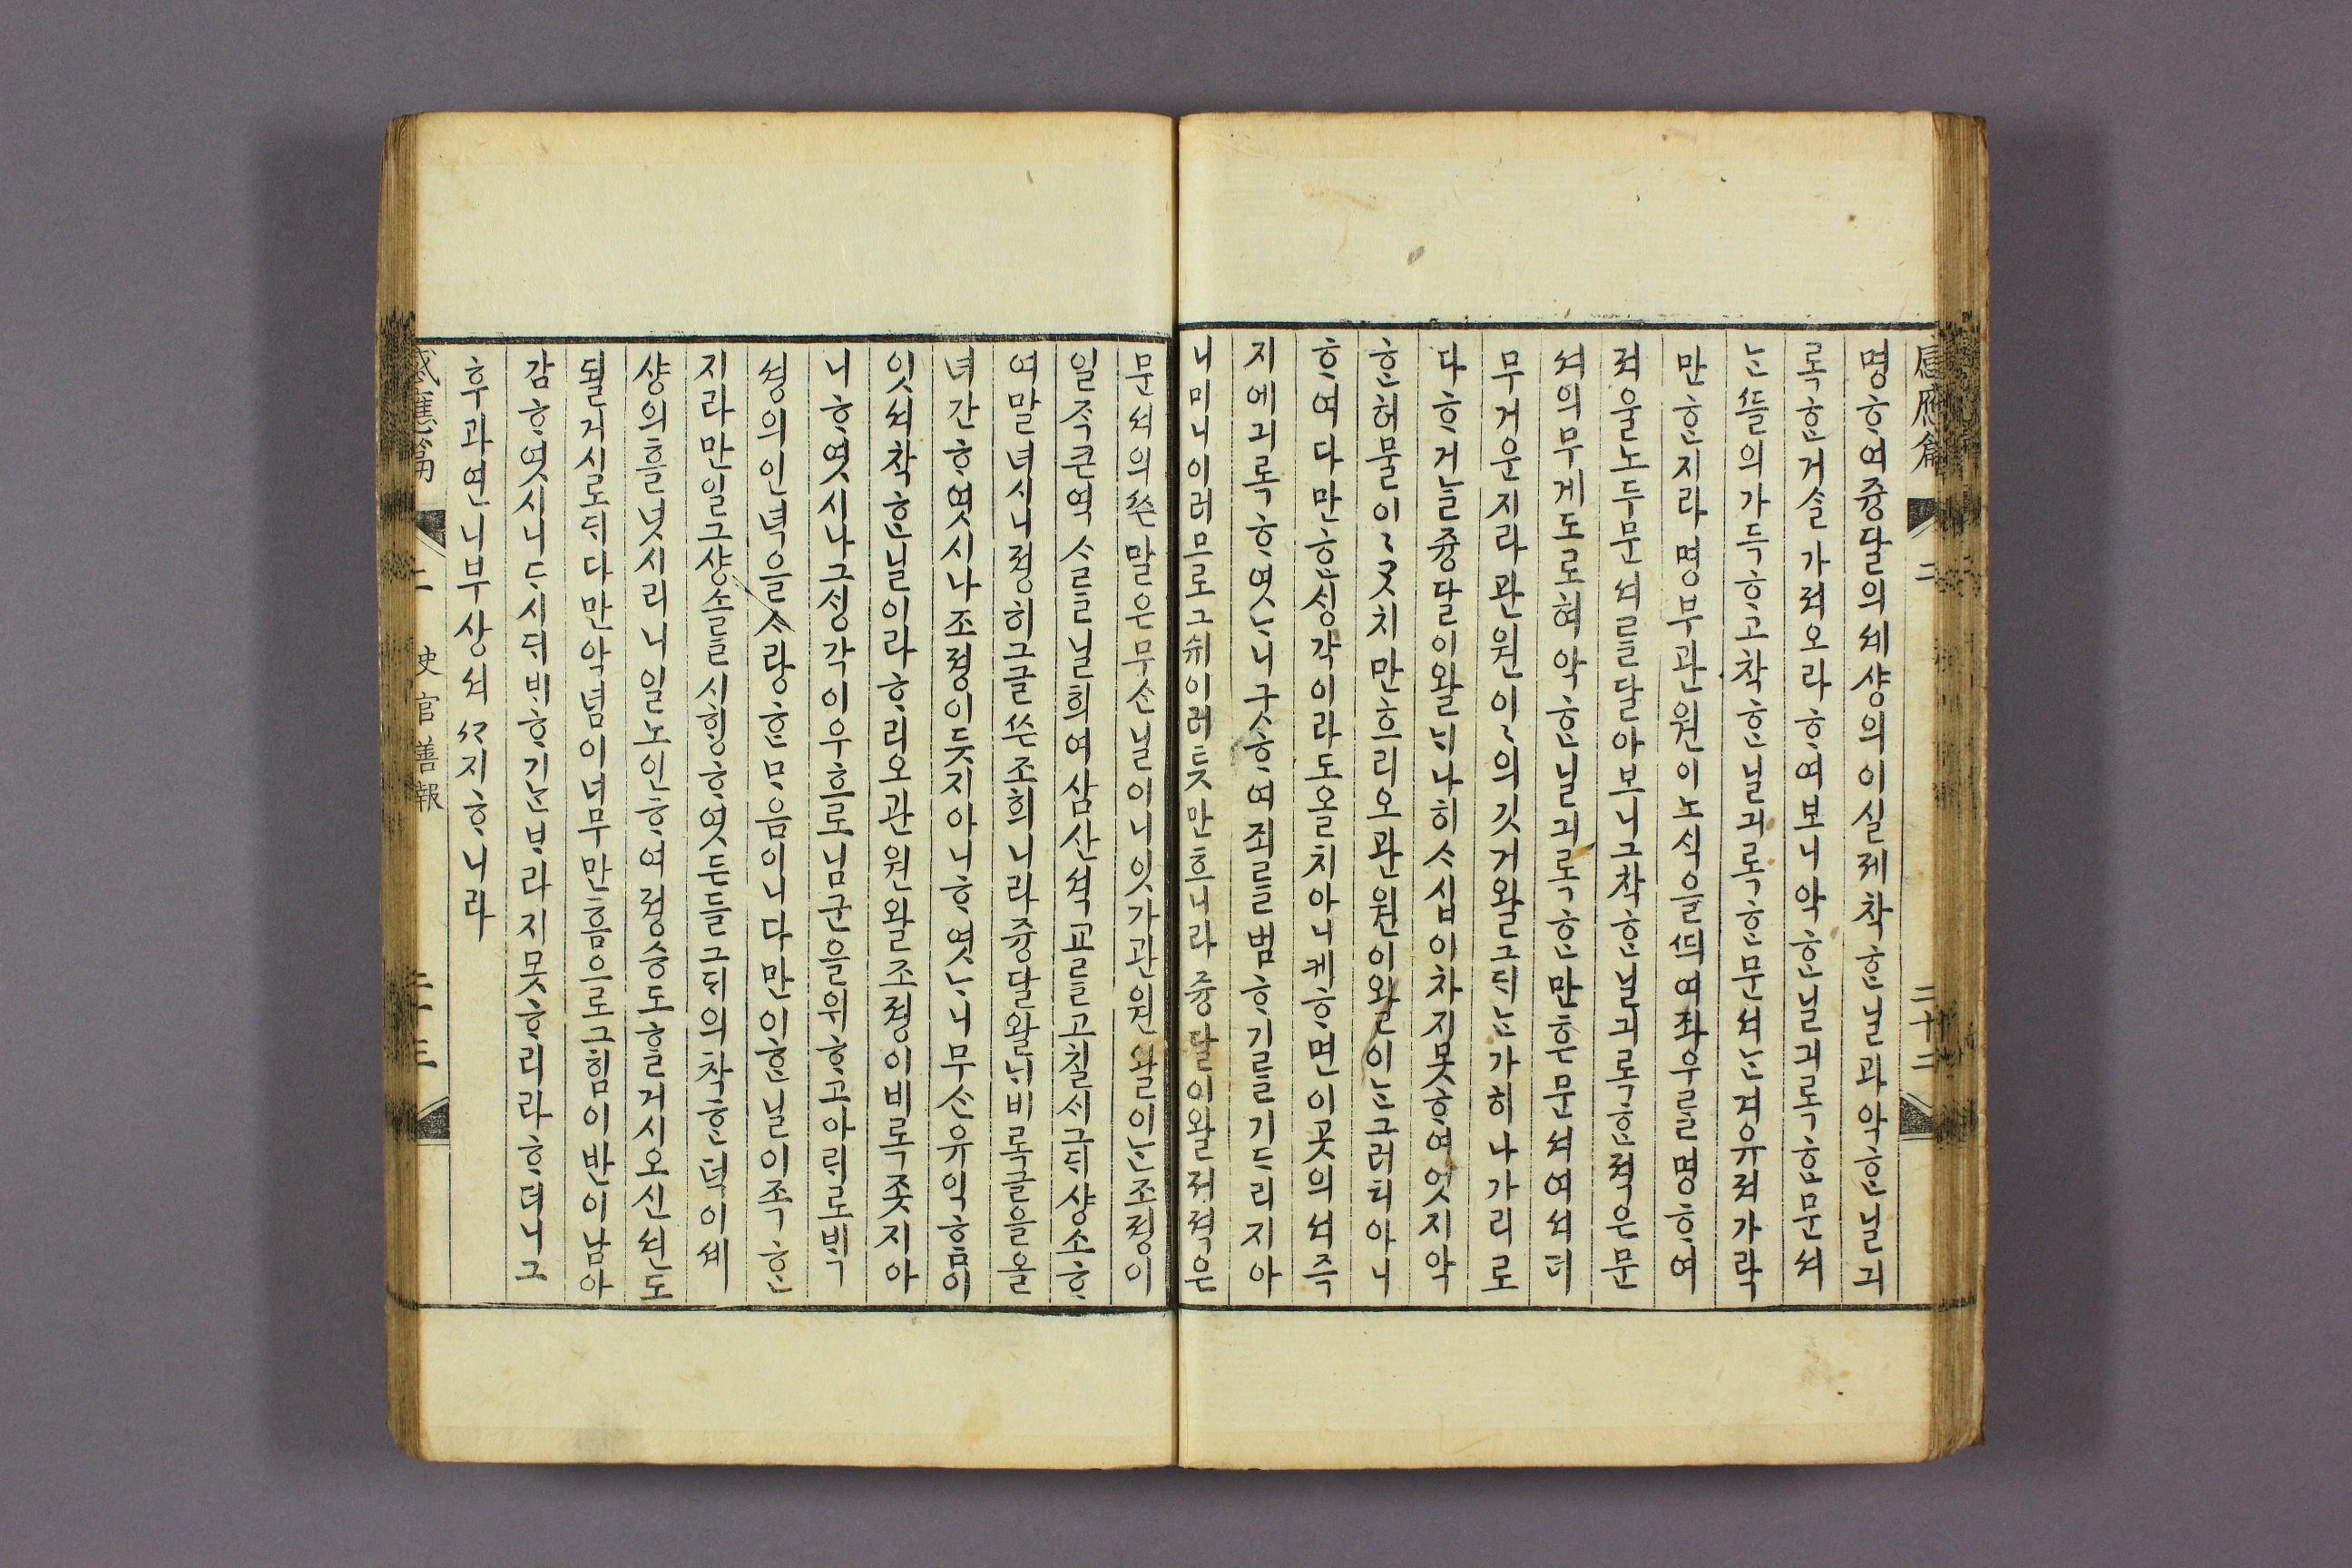 명ᄒᆞ여즁달의셰샹의이실졔착ᄒᆞᆫ닐과악ᄒᆞᆫ닐긔
록ᄒᆞᆫ거슬가져오라ᄒᆞ여보니악ᄒᆞᆫ닐긔록ᄒᆞᆫ문셔
ᄂᆞᆫ뜰의가득ᄒᆞ고착ᄒᆞᆫ닐긔록ᄒᆞᆫ문셔ᄂᆞᆫ겨유져가락
만ᄒᆞᆫ지라명부관원이ᄂᆞᆺ식을ᄯᅴ여좌우를명ᄒᆞ여
져울노두문셔를달아보니그착ᄒᆞᆫ닐긔록ᄒᆞᆫ젹은문
셔의무게도로혀악ᄒᆞᆫ닐긔록ᄒᆞᆫ만ᄒᆞᆫ문셔여셔더
무거운지라관원이〻의깃거왈그ᄃᆡᄂᆞᆫ가히나가리로
다ᄒᆞ거ᄂᆞᆯ즁달이왈ᄂᆡ나히ᄉᆞ십이차지못ᄒᆞ여잇지악
ᄒᆞᆫ허물이〻ᄀᆞᆺ치만흐리오관원이왈이ᄂᆞᆫ그러치아니
ᄒᆞ여다만ᄒᆞᆫᄉᆡᆼ각이라도올치아니케ᄒᆞ면이곳의셔즉
지에긔록ᄒᆞ엿ᄂᆞ니구ᄐᆞ여죄를범ᄒᆞ기를기ᄃᆞ리지아
니미니이러므로그쉬이러듯만흐니라즁달이왈져젹은
문셔의쓴말은무ᄉᆞᆫ닐이니잇가관원왈이ᄂᆞᆫ조졍이
일즉큰역ᄉᆞ를닐희여삼산셕교를고칠ᄉᆡ그ᄃᆡ샹소ᄒᆞ
여말녀시니졍히그글쓴조희니라즁달왈ᄂᆡ비록글을올
녀간ᄒᆞ엿시나조졍이듯지아니ᄒᆞ엿ᄂᆞ니무ᄉᆞᆫ유익ᄒᆞᆷ이
잇셔착ᄒᆞᆫ닐이라ᄒᆞ리오관원왈조졍이비록좃지아
니ᄒᆞ엿시나그ᄉᆡᆼ각이우흐로님군을위ᄒᆞ고아ᄅᆡ로ᄇᆡᆨ
셩의인덕을ᄉᆞ랑ᄒᆞᆫᄆᆞ음이니다만이ᄒᆞᆫ닐이족ᄒᆞᆫ
지라만일그샹소를시ᄒᆡᆼᄒᆞ엿든들그ᄃᆡ의착ᄒᆞᆫ덕이셰
샹의흘넛시리니일노인ᄒᆞ여졍승도ᄒᆞᆯ거시오신션도
될거시로ᄃᆡ다만악념이너무만흠으로그힘이반이남아
감ᄒᆞ엿시니ᄃᆞ시ᄃᆡᄇᆡᄒᆞ기ᄂᆞᆫᄇᆞ라지못ᄒᆞ리라ᄒᆞ더니그
후과연니부샹셔ᄭᆞ지ᄒᆞ니라
感應篇 二 二十二
感應篇 二 史官善報